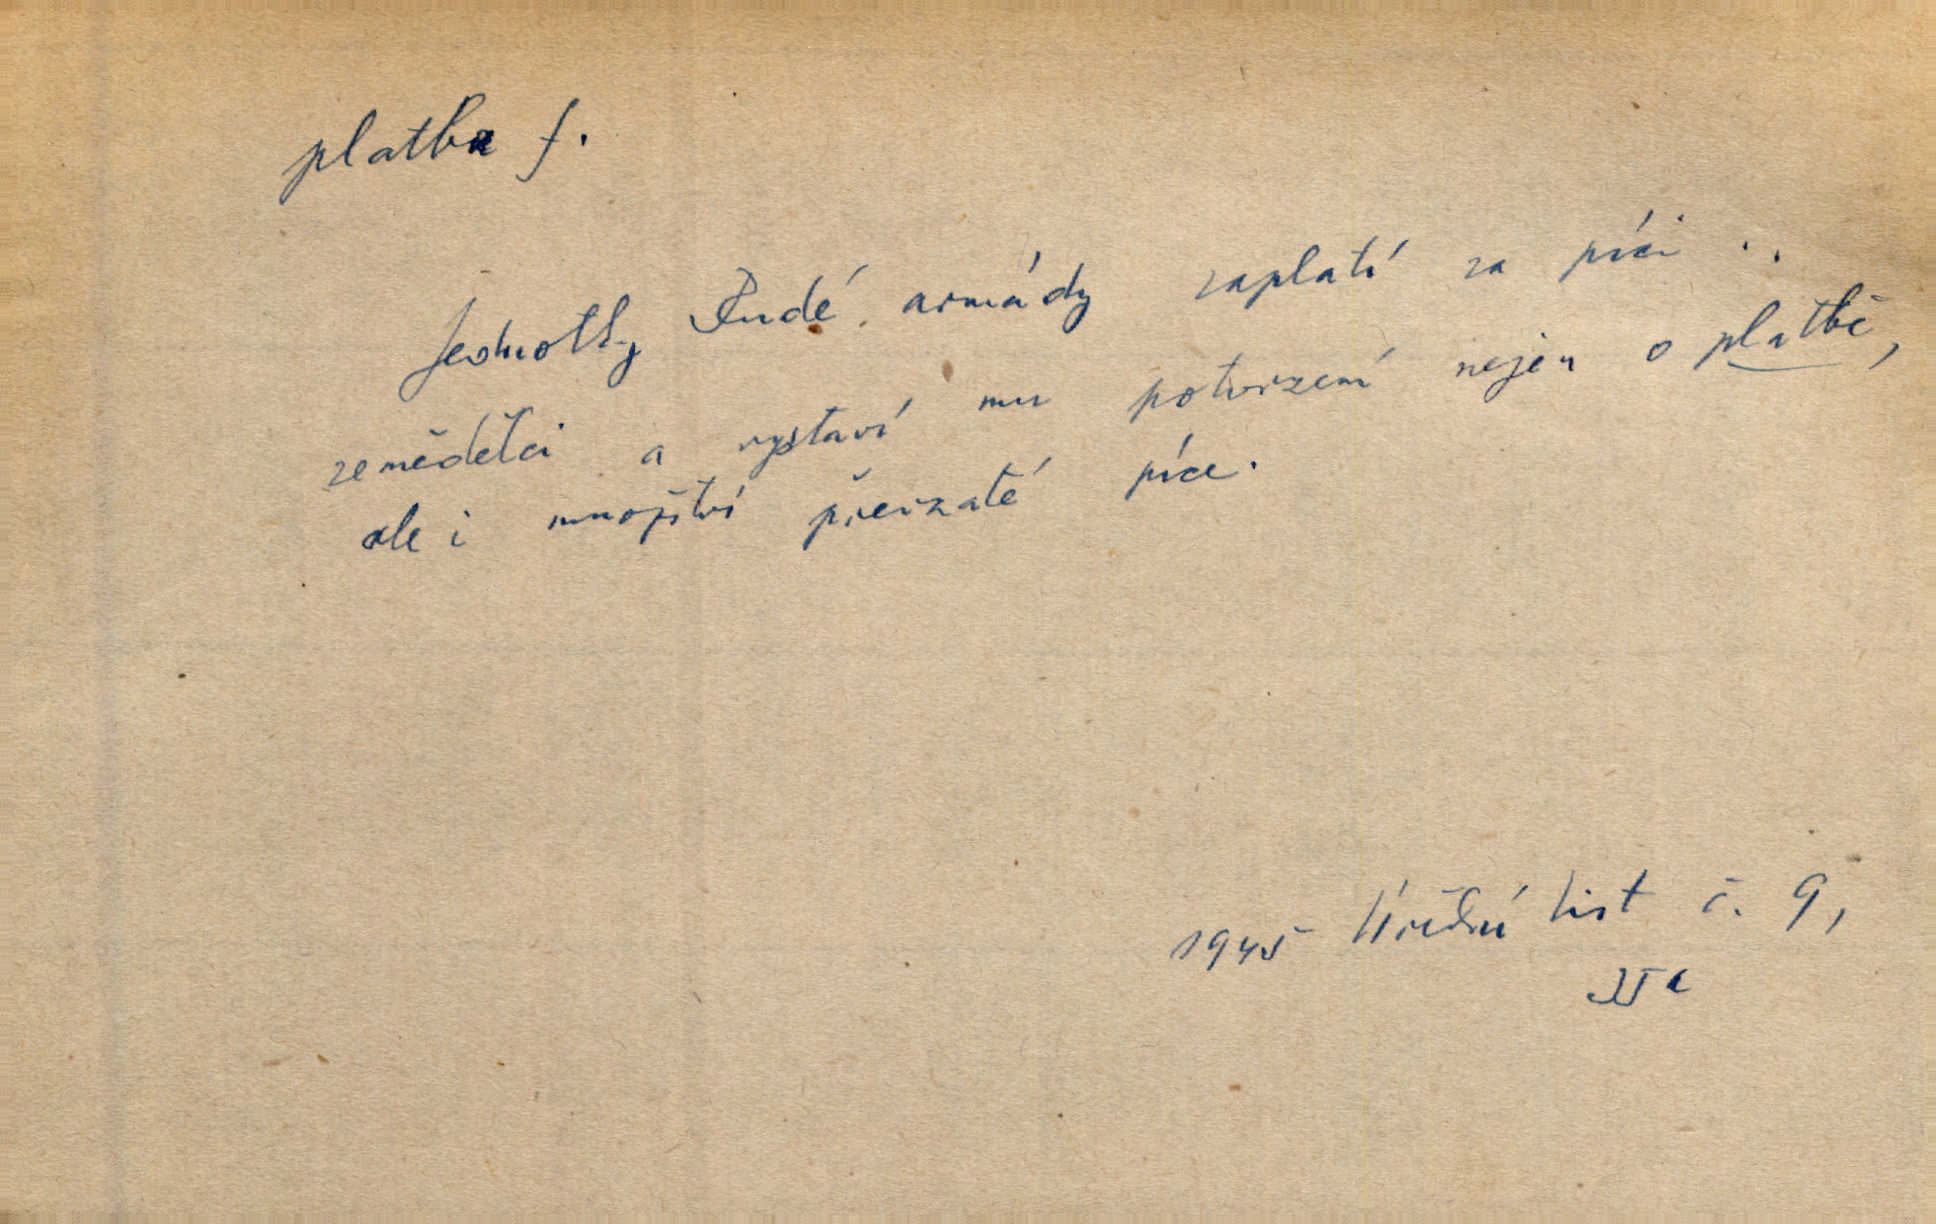 platba f.
Jednotky Rudé armády zaplatí za píci ..
zemědělci a vystaví mu potvrzení nejen o platbě,
ale i množství převzaté píce.
1945 Úřední list č. 9,